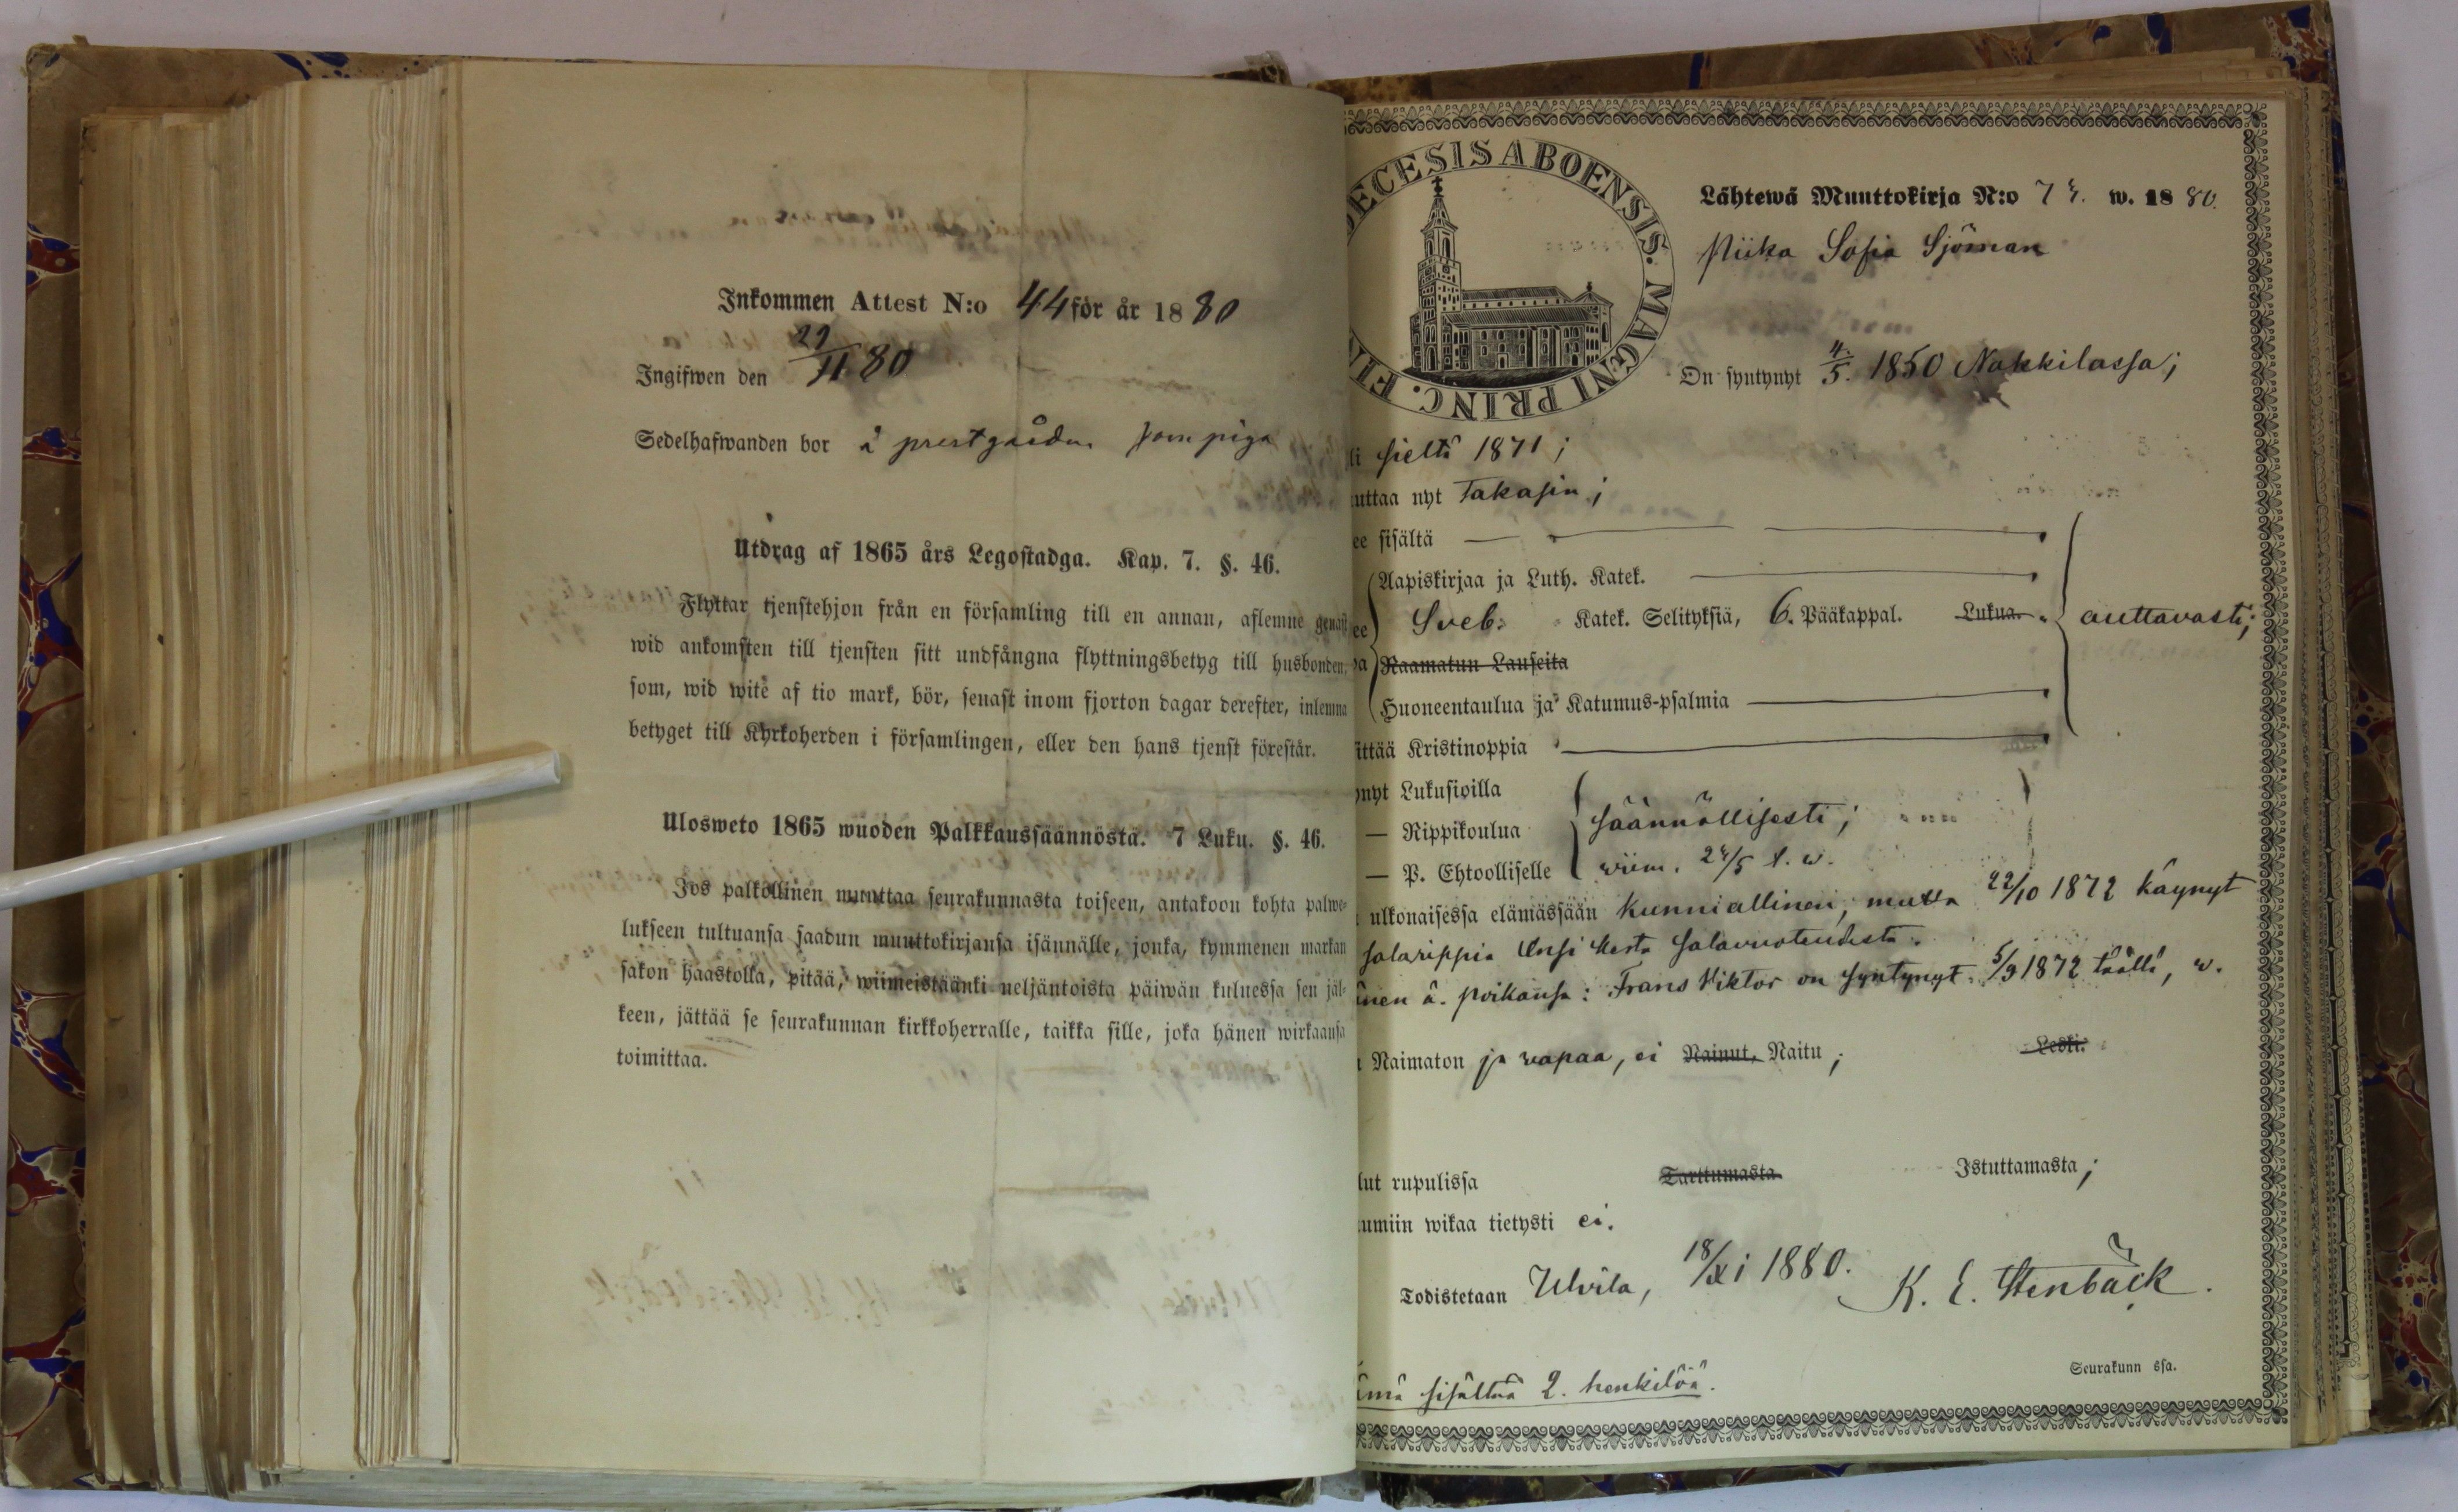 Inkommen Attest N:o 44 för år 1880
Ingifwen den 29/11 80
Sedelhafwanden bor å prestgården som piga
Utdrag af 1865 års Legostadga. Kap. 7. §. 46.
Flyttar tjenstehjon från en församling till en annan, aflemne genast
wid ankomsten till tjensten sitt undfångna flyttningsbetyg till husbonden,
som, wid wite af tio mark, bör, senast inom fjorton dagar derefter, inlemna
betyget till Kyrkoherden i församlingen, eller den hans tjenst förestår.
Ulosweto 1865 wuoden Palkkaussäännöstä. 7 Luku. §. 46.
Jos palkollinen muuttaa seurakunnasta toiseen, antakoon kohta palwe-
lukseen tultuansa saadun muuttokirjansa isännälle, jonka, kymmenen markan
sakon haastolla, pitää, wiimeistäänki neljäntoista päiwän kuluessa sen jäl-
keen, jättää se seurakunnan kirkkoherralle, taikka sille, joka hänen wirkaansa
toimittaa.
ECESIS ABOENSIS. MAGNI PRINC. FIN
Lähtewä Muuttokirja N:o w. 1880.
Piika Sofia Sjöman
On syntynyt 4/5. 1850 Nakkilassa;
li sieltä 1871;
uttaa nyt Takasin;
ee sisältä
Aapiskirjaa ja Luth. Katek.
ee Sveb. Katek. Selityksiä, 6. Pääkappal. Lukua. auttavasti;
pa Raamatun Lauseita
Huoneentaulua ja Katumus-psalmia
ittää Kristinoppia
ynyt Lukusioilla
— Rippikoulua säännöllisesti;
— P. Ehtoolliselle wiim. t. w.
ulkonaisessa elämässään kunniallinen; mutta 22/10 1872 käynyt
salarippia Ensi kerta salavuoteudesta.
änen ä. poikansa: Frans Viktor on syntynyt 5/9 1872 täällä, w.
Naimaton ja vapaa, ei Nainut, Naitu; Leski.
lut rupulissa Tarttumasta Istuttamasta;
umiin wikaa tietysti ei.
Todistetaan Ulvila, 18/XI 1880. K. E. Stenbäck.
Seurakunn ssa.
ämä sisältää 2. henkilöä.